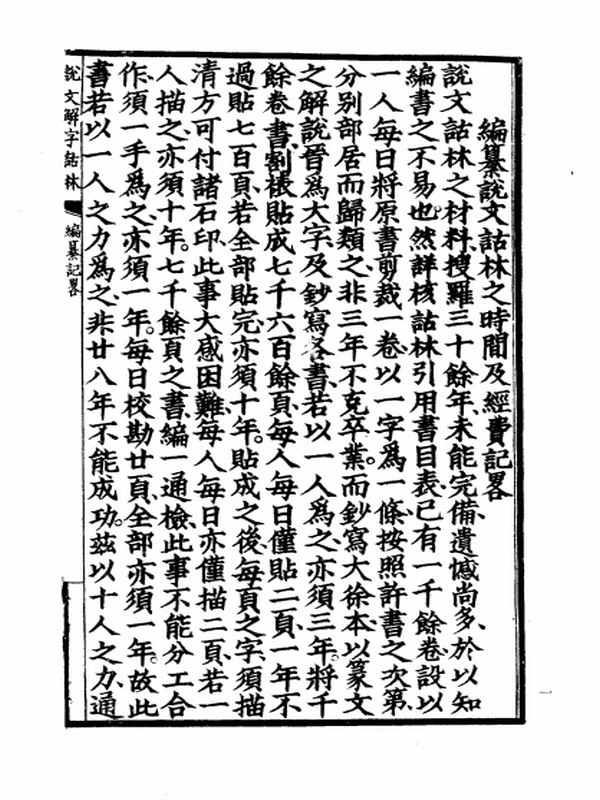 編纂說文詁林之時間及經費記畧
說文詁林之材料、搜羅三十餘年、未能完備、遺憾尚多、於以知
編書之不易也。然詳核詁林引用書目表、已有一千餘卷、設以
一人每日將原書剪裁一卷、以一字爲一條、按照許書之次第、
分别部居而歸類之、非三年不克卒業。而鈔寫大徐本、以篆文
之解說晉爲大字、及鈔寫各書、若以一人爲之、亦須三年。將千
餘卷書、割裱貼成七千六百餘頁、每人每日僅貼二頁、一年不
過貼七百頁、若全部貼完、亦須十年。貼成之後、每頁之字、須描
清方可付諸石印、此事大感困難、每人每日亦僅描二頁、若一
人描之、亦須十年。七千餘頁之書、編一通檢、此事不能分工合
作、須一手爲之、亦須一年。每日校勘廿頁、全部亦須一年。故此
書若以一人之力爲之、非廿八年不能成功。茲以十人之力、通
說文解字詁林
編纂記畧